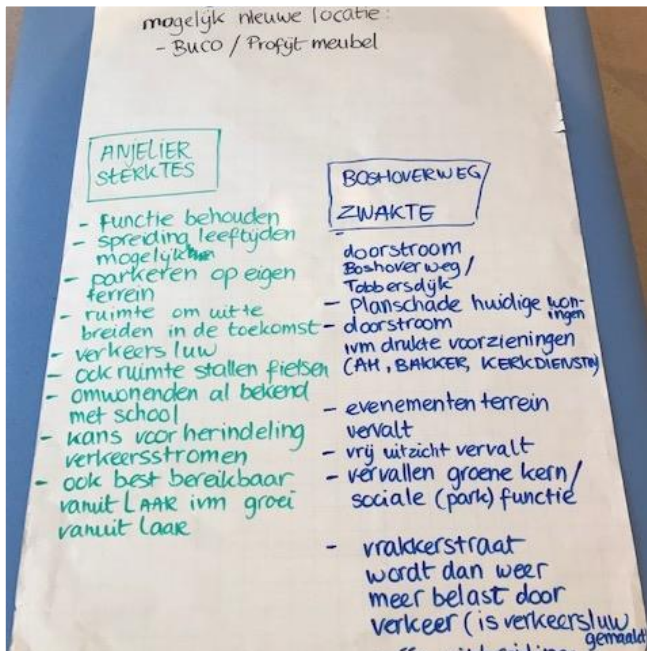 mogelijk nieuwe locatie:
- BUCO / Profijt meubel
ANJELIER
STERKTES
- functie behouden
- spreiding leeftijden
mogelijk
- parkeren op eigen
terrein
- ruimte om uit te
breiden in de toekomst
- verkeersluw
- ook ruimte stallen fietsen
- omwonenden al bekend
met school
- kans voor herindeling
verkeersstromen
- ook best bereikbaar
vanuit LAAR ivm groei
vanuit laar
BOSHOVERWEG/
ZWAKTE
-
doorstroom
Boshoverweg/
Tobbersdijk
- Planschade huidige won-
ingen
- doorstroom
ivm drukte voorzieningen
(AH, BAKKER, KERKDIENSTEN)
- evenementen terrein
vervalt
- vrij uitzicht vervalt
- vervallen groene kern/
sociale (park) functie
- vrakkerstraat
wordt dan weer
meer belast door
verkeer (is verkeersluw
gemaakt